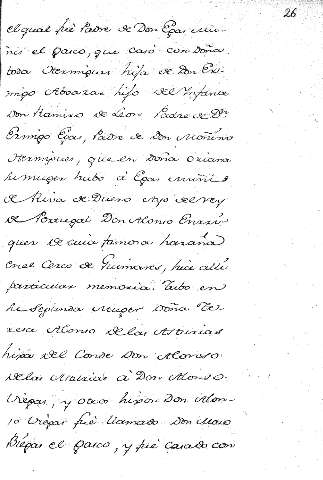 26
el qual fué Padre de Don Egas Mu-
niz el Gasco, que casó con Doña
toda Hermiguez hija de Don Er-
migo Aboazar hijo del Infante
Don Ramiro de Leon Padre de Dn
Ermigo Egas, Padre de Don Monino
Hermiguez, que en Doña Oriana
su muger hubo á Egas Muñiz
de Riba de Duero Ayo del Rey
de Portugal Don Alonso Enrri
quez de cuia famosa hazaña
en el Cerco de Guimares, hice alli
particular memoria. Tubo en
su segunda Muger Doña Ter-
resa Alonso de las Asturias
hija del Conde Don Alonso
de las Asturias á Don Alonso
Viegas, y otros hijos. Don Alon-
so Viegas fué llamado Don Mozo
Viegas el Gasco, y fué casado con